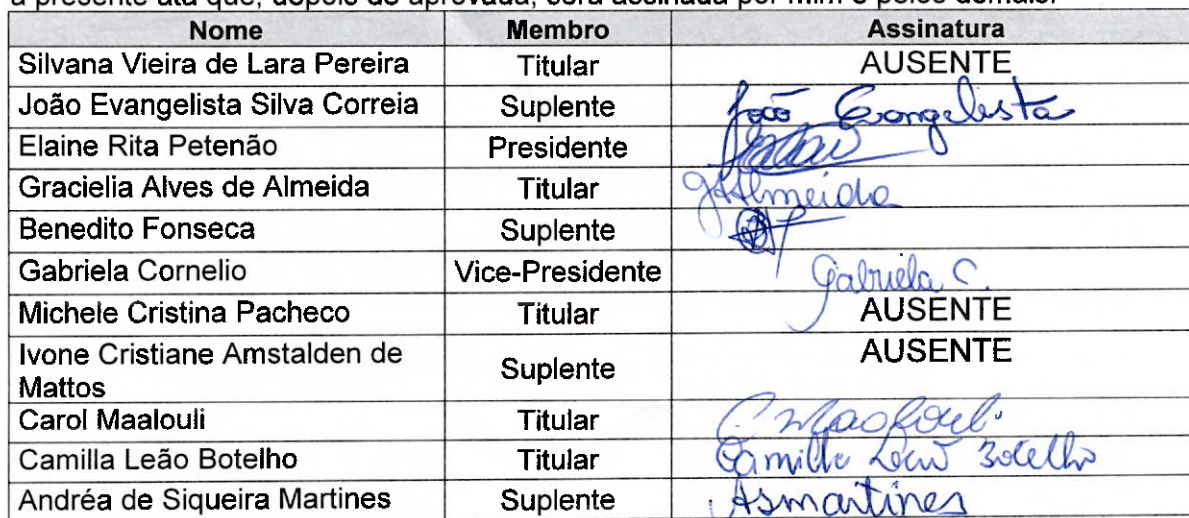 a presente ata que, depois de aprovada, será assinada por mim e pelos demais.
Nome Membro Assinatura
Silvana Vieira de Lara Pereira Titular AUSENTE
João Evangelista Silva Correia Suplente João Evangelista
Elaine Rita Petenão Presidente
Gracielia Alves de Almeida Titular GAAlmeida
Benedito Fonseca Suplente
Gabriela Cornelio Vice-Presidente Gabriela C.
Michele Cristina Pacheco Titular AUSENTE
Ivone Cristiane Amstalden de
Mattos Suplente AUSENTE
Carol Maalouli Titular C Maalouli
Camilla Leão Botelho Titular Camilla Leão Botelho
Andréa de Siqueira Martines Suplente ASmartines